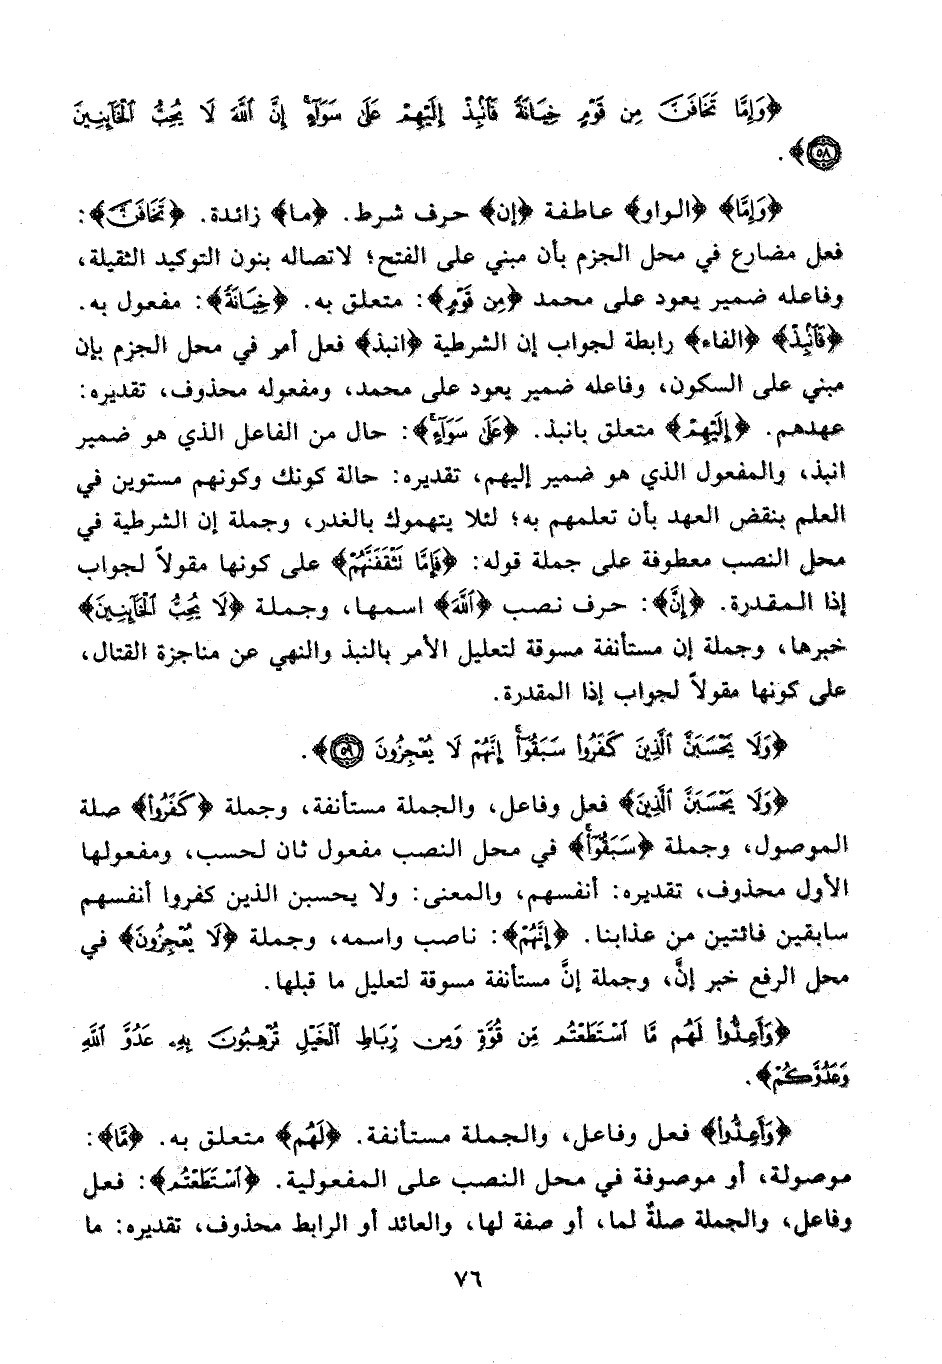 ﴿وَإِمَّا تَخَافَنَّ مِن قَوْمٍ خِيَانَةً فَٱنۢبِذْ إِلَيْهِمْ عَلَىٰ سَوَآءٍ ۚ إِنَّ ٱللَّهَ لَا يُحِبُّ ٱلْخَآئِنِينَ
٥٨﴾.
﴿وَإِمَّا﴾ ﴿الواو﴾ عاطفة ﴿إن﴾ حرف شرط. ﴿ما﴾ زائدة. ﴿تَخَافَنَّ﴾:
فعل مضارع في محل الجزم بأن مبني على الفتح؛ لاتصاله بنون التوكيد الثقيلة،
وفاعله ضمير يعود على محمد ﴿مِن قَوْمٍ﴾: متعلق به. ﴿خِيَانَةً﴾: مفعول به.
﴿فَٱنۢبِذْ﴾ ﴿الفاء﴾ رابطة لجواب إن الشرطية ﴿انبذ﴾ فعل أمر في محل الجزم بإن
مبني على السكون، وفاعله ضمير يعود على محمد، ومفعوله محذوف، تقديره:
عهدهم. ﴿إِلَيْهِمْ﴾ متعلق بانبذ. ﴿عَلَىٰ سَوَآءٍ ۚ﴾: حال من الفاعل الذي هو ضمير
انبذ، والمفعول الذي هو ضمير إليهم، تقديره: حالة كونك وكونهم مستوين في
العلم بنقض العهد بأن تعلمهم به؛ لئلا يتهموك بالغدر، وجملة إن الشرطية في
محل النصب معطوفة على جملة قوله: ﴿فَإِمَّا تَثْقَفَنَّهُمْ﴾ على كونها مقولاً لجواب
إذا المقدرة. ﴿إِنَّ﴾: حرف نصب ﴿ٱللَّهَ﴾ اسمها، وجملة ﴿لَا يُحِبُّ ٱلْخَآئِنِينَ﴾
خبرها، وجملة إن مستأنفة مسوقة لتعليل الأمر بالنبذ والنهي عن مناجزة القتال،
على كونها مقولاً لجواب إذا المقدرة.
﴿وَلَا يَحْسَبَنَّ ٱلَّذِينَ كَفَرُوا۟ سَبَقُوٓا۟ ۚ إِنَّهُمْ لَا يُعْجِزُونَ ٥٩﴾.
﴿وَلَا يَحْسَبَنَّ ٱلَّذِينَ﴾ فعل وفاعل، والجملة مستأنفة، وجملة ﴿كَفَرُوا۟﴾ صلة
الموصول، وجملة ﴿سَبَقُوٓا۟ ۚ﴾ في محل النصب مفعول ثان لحسب، ومفعولها
الأول محذوف، تقديره: أنفسهم، والمعنى: ولا يحسبن الذين كفروا أنفسهم
سابقين فائتين من عذابنا. ﴿إِنَّهُمْ﴾: ناصب واسمه، وجملة ﴿لَا يُعْجِزُونَ﴾ في
محل الرفع خبر إنَّ، وجملة إنَّ مستأنفة مسوقة لتعليل ما قبلها.
﴿وَأَعِدُّوا۟ لَهُم مَّا ٱسْتَطَعْتُم مِّن قُوَّةٍ وَمِن رِّبَاطِ ٱلْخَيْلِ تُرْهِبُونَ بِهِۦ عَدُوَّ ٱللَّهِ
وَعَدُوَّكُمْ﴾.
﴿وَأَعِدُّوا۟﴾ فعل وفاعل، والجملة مستأنفة. ﴿لَهُم﴾ متعلق به. ﴿مَّا﴾:
موصولة، أو موصوفة في محل النصب على المفعولية. ﴿ٱسْتَطَعْتُم﴾: فعل
وفاعل، والجملة صلةٌ لما، أو صفة لها، والعائد أو الرابط محذوف، تقديره: ما
٧٦